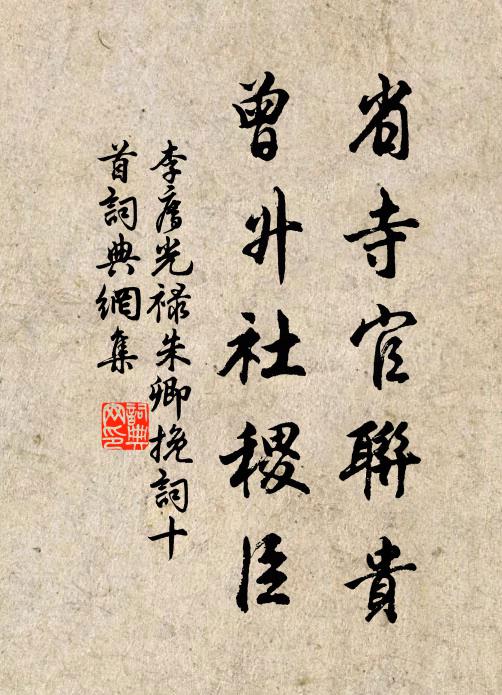 省寺官聯貴
曾升社稷臣
李廌光祿朱卿挽詞十
首詞典網集
詞典
网印